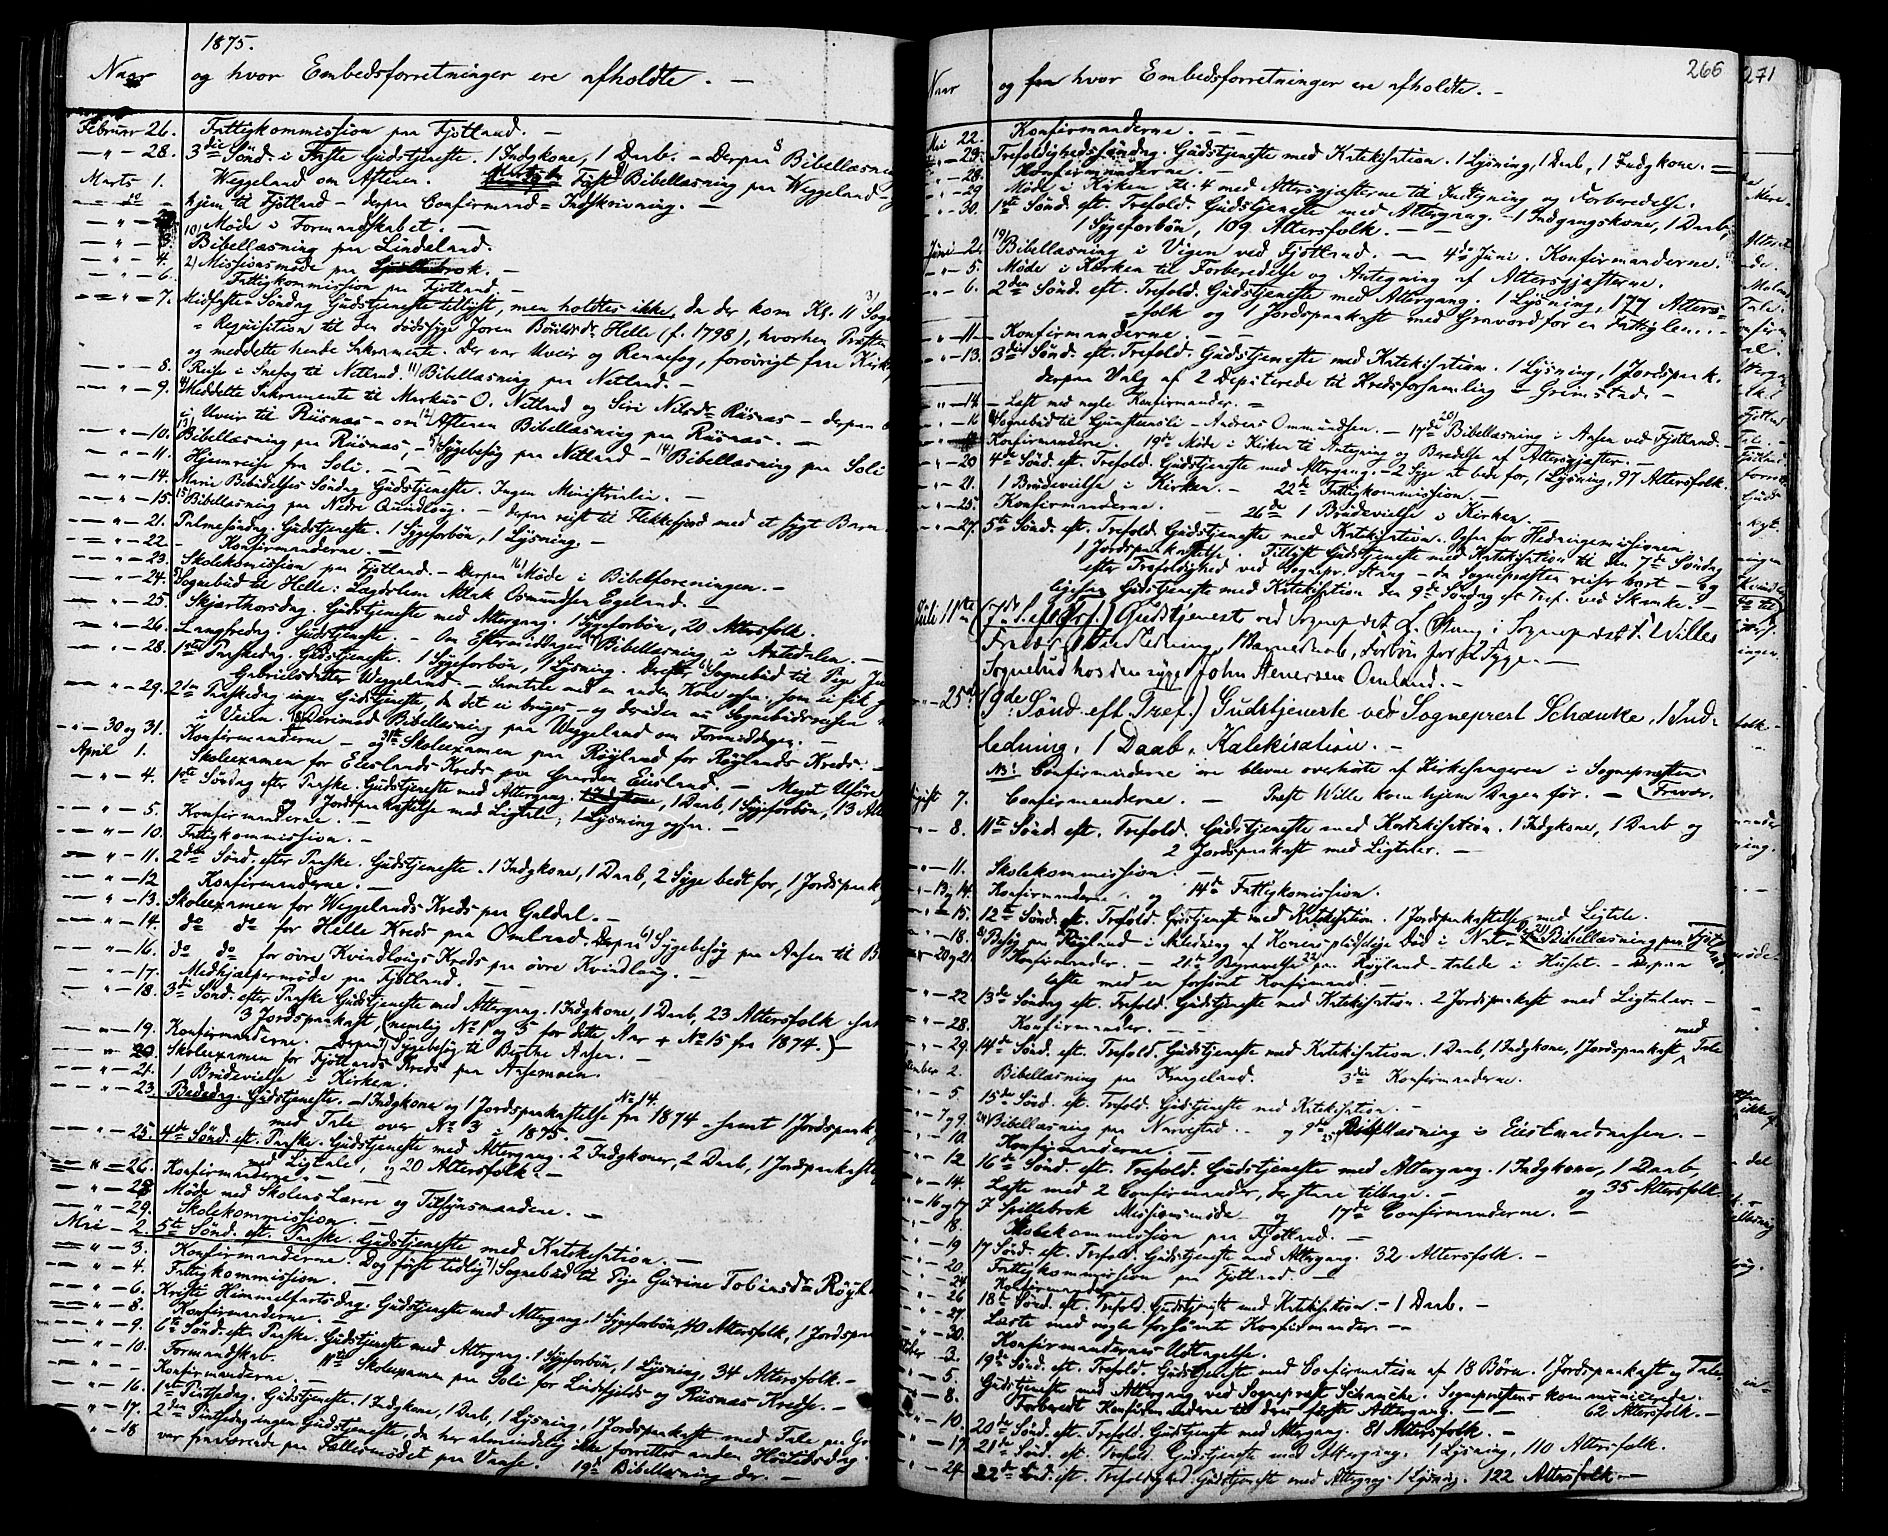 1875.
Naar og hvor Embedsforretninger ere afholdte. —
Februar 26. Fattigkommission paa Fjotland. —
— " — 28. 3die Sönd. i Faste Gudstjeneste. 1 Indgkone, 1 Daab. — Derpaa Bibellæsning
Marts 1. Weggeland om Aftenen. Först Bibellæsning paa Weggeland —
— do — hjem til Fjotland — derpaa Confirmand = Indskrivning. —
— " — Möde i Formandskabet. —
— " — Bibellæsning paa Lindeland.
— " — 4. Missionsmöde paa
— " — 6. Fattigkommission paa Fjotland. —
— " — 7. Midfaste Söndag Gudstjeneste tillyst, men holdtes ikke, da der kom Kl. 11 Sogne
= Requisition til den dödssyge Joren Helle (f. 1798), hvorhen Præsten
og meddelte hende Sakramente. Der var Uveir og Rennefog, forövrigt faa Kirke
— " — 8. Reise i Snefog til Netland. 11) Bibellæsning paa Netland. —
— " — 9. Meddelte Sakramente til Markus O. Netland og Siri Nilsdr Risnæs — derpaa
i Uveir til Risnæs — om Aftenen Bibellæsning paa Risnæs. —
— " — 10. Bibellæsning paa Risnæs, — Sygebesög paa Netland — 14) Bibellæsning paa Soli
— " — 11. Hjemreise fra Soli. —
— " — 14. Mariæ Bebudelses Söndag Gudstjeneste. Ingen Ministerialia. —
— " — 15. Bibellæsning paa Nedre Qvindlog. — derpaa reist til Flekkefjord med et sygt Barn
— " — 21. Palmesöndag. Gudstjeneste. 1 Sygeforbön, 1 Lysning. —
— " — 22. Konfirmanderne. —
— " — 23. Skolekommission paa Fjotland. — Derpaa 16) Möde i Bibelforeningen. —
— " — 24. Sognebud til Helle: Lægdslem Osmundsen Egeland. —
— " — 25. Skjærthorsdag. Gudstjeneste med Altergang. 1 Sygeforbön, 20 Altersfolk.
— " — 26. Langfredag. Gudstjeneste. — Om Eftermiddagen Bibellæsning i Aatedalen. —
— " — 28. 1ste Paaskedag. Gudstjeneste. 1 Sygeforbön, 1 Lysning. Derefter Sognebud til Pige
Gabrielsdatter Weggeland — Samtale med en anden Kone ogsaa, som ei fik
— " — 29. 2den Paaskedag ingen Gudstjeneste, da det ei bruges — og desuden nu Sognebudsreisen
i Veien. Derimod Bibellæsning paa Weggeland om Formiddagen. —
— " — 30 og 31. Konfirmanderne — og 31te Skoleexamen paa Röyland for Röylands Kreds. —
April 1. Skoleexamen for Eieslands Kreds paa Gaarden Eiesland. — Meget Uföre
— " — 4. 1ste Söndag efter Paaske. Gudstjeneste med Altergang. 1 Daab, 1 Sygeforbön, 13 Alt
og Jordspaakastelse med Ligtale, 1 Lysning ogsaa. —
— " — 5. Konfirmanderne. —
— " — 10. Fattigkommission. —
— " — 11. 2den Sönd. efter Paaske. Gudstjeneste. 1 Indgkone, 1 Daab, 2 Syge bedt for, 1 Jordspaak
— " — 12 Konfirmanderne. —
— " — 13. Skoleexamen for Weggelands Kreds paa Galdal. —
— " — 14. do do for Helle Kreds paa Omland. Derpaa Sygebesög paa Aasen til B
— " — 16. do do for övre Kvindlougs Kreds paa övre Kvindlaug. —
— " — 17. Medhjælpermöde paa Fjotland. —
— " — 18. 3die Sönd. efter Paaske Gudstjeneste med Altergang. 1 Indgkone, 1 Daab, 23 Altersfolk samt
3 Jordspaakast (nemlig No 1 og 5 for dette Aar + No 15 fra 1874.) —
— " — 19. Konfirmanderne. — derpaa Sygebesög til Berthe Aasen. —
— " — 20. Skoleexamen for Fjotlands Kreds paa Aasemoen.
— " — 21. 1 Brudevielse i Kirken.
— " — 23. Bededag. Gudstjeneste. — 1 Indgkone og 1 Jordspaakastelse No 14. fra 1874 — samt 1 Jordspaak
med Tale over No 3 i 1875. —
— " — 25. 4de Sönd. eft. Paaske. Gudstjeneste med Altergang. 2 Indgkoner, 2 Daab, 1 Jordspaakastelse
med Ligtale, og 20 Altersfolk. —
— " — 26. Konfirmanderne. —
— " — 28 Möde med Skolens Lærere og Tilsynsmændene. —
— " — 29. Skolekommission. —
Mai — 2. 5te Sönd. eft. Paaske. Gudstjeneste med Katekisation. —
— " — 3. Konfirmanderne. Dog först tidlig Sognebud til Pige Gurine Tobiasdr Röyl
— " — 4. Fattigkommission. —
— " — 6. Kristi Himmelfartsdag. Gudstjeneste med Altergang. 1 Sygeforbön, 40 Altersfolk, 1 Jordspaa
— " — 8. Konfirmanderne. —
— " — 9. 6te Sönd. eft. Paaske. Gudstjeneste med Altergang. 1 Sygeforbön, 1 Lysning, 34 Altersfolk. —
— " — 10. Formandskab. 11te Skoleexamen paa Soli for Lindefjelds og Risnæs Kredse. —
— " — Konfirmanderne. —
— " — 16. 1ste Pintsedag. Gudstjeneste. 1 Indgkone, 1 Daab, 1 Lysning, 1 Jordspaakast med Tale paa
— " — 17. 2den Pintsedag ingen Gudstjeneste, da her almindelig ikke forrettes anden Höitidsdag.
— " — 18 var fraværende paa Fællesmödet paa Vanse. 19de Bibellæsning der. —
266
Naar og hvor Embedsforretninger ere afholdte. —
Mai 22. Konfirmanderne. —
Trefoldighedssöndag. Gudstjeneste med Katekisation. 1 Lysning, 1 Daab, 1 Indgkone. —
— 28. Konfirmanderne. —
" — 29 Möde i Kirken Kl. 4 med Altersgjæsterne til Indtegning og Forberedelse.
" — 30. 1ste Sönd. eft. Trefold. Gudstjeneste med Altergang. 1 Indgangskone, 1 Daab,
1 Sygeforbön, 109 Altersfolk. —
Juni — 2. 19) Bibellæsning i Vigen ved Fjotland. — 4de Juni. Konfirmanderne.
" — 5. Möde i Kirken til Forberedelse og Antegning af Altersgjæsterne.
" — 6. 2den Sönd. eft. Trefold. Gudstjeneste med Altergang. 1 Lysning, 177 Alters=
=folk og 1 Jordspaakast med Gravord for en Fattiglem. —
" — 11. Konfirmanderne. —
" — 13. 3die Sönd. eft. Trefold. Gudstjeneste med Katekisation. 1 Lysning, 1 Jordspaak.
derpaa Valg af 2 Deputerede til Kredsforsamling i Grimstad. —
" — 14. Læst med nogle Konfirmander. —
" — 16 Sognebud til Gunstensli — Anders Ommundsen. — 17de 20) Bibellæsning i Aasen ved Fjotland. —
Konfirmanderne. 19de Möde i Kirken til Antegning og Beredelse af Altersgjæster. —
" — 20 4de Sönd. eft. Trefold. Gudstjeneste med Altergang. — 2 Syge at bede for, 1 Lysning, 97 Altersfolk.
" — 21. 1 Brudevielse i Kirken. — 22de Fattigkommission. —
" — 25. Konfirmanderne. — 26de 1 Brudevielse i Kirken. —
" — 27. 5te Sönd. eft. Trefold. Gudstjeneste med Katekisation. Offer for Hedningemissionen.
1 Jordspaakastelse. Tillyst Gudstjeneste med Katekisation til den 7de Söndag
efter Trefoldighed ved Sognepr. Stang — da Sognepræsten reiser bort — og
ligesaa Gudstjeneste med Katekisation den 9de Söndag eft. Tref. ved Skanke. —
Juli 11te (7de S. eft. Tref.) Gudstjeneste ved Sogneprest L. Stang i Sogneprest Willes
Fravær, 1 Indledning, 1 Barnedaab, Forbön for 2 Syge. —
Sognebud hos den syge John Omland. —
— 25de (9de Sönd. eft. Tref.) Gudstjeneste ved Sogneprest Schanke, 1 Ind=
ledning, 1 Daab, Katekisation. —
NB: Confirmanderne ere blevne overhörte af Kirkesangeren i Sognepræstens
Fravær.
August 7. Confirmanderne. — Præst Wille kom hjem Dagen för. —
" — 8. 11te Sönd. eft. Trefold. Gudstjeneste med Katekisation. 1 Indgkone, 1 Daab og
2 Jordspaakast med Ligtaler. —
" — 11. Skolekommission. —
— 13 og 14. Konfirmanderne. og 14de Fattigkomission.
" — 15. 12te Sönd. eft. Trefold. Gudstjeneste med Katekisation. 1 Jordspaakastelse med Ligtale.
" — 18. Besög paa Röyland — i Anledning af Konens pludselige Död i Nat — 21) Bibellæsning paa Fjotland
— 20 og 21. Konfirmander. — 21de Begravelse paa Röyland — talede i Huset. — Derpaa
læste med en forsömt Konfirmand. —
" — 22 13de Söndag eft. Trefold. Gudstjeneste med Katekisation. 2 Jordspaakast med Ligtaler. —
" — 28. Konfirmander. —
" — 29. 14de Sönd. eft. Trefold. Gudstjeneste med Katekisation. 1 Daab, 1 Indgkone, 1 Jordspaakast med Tale
tember 2. Bibellæsning paa Knapeland. 3die Konfirmanderne.
" — 5 15de Sönd. eft. Trefold. Gudstjeneste med Katekisation. —
" — 7 og 9. Bibellæsning paa Narvestad. — og 9de Bibellæsning i
" — 10. Konfirmanderne. —
" — 12 16de Sönd. eft. Trefold. Gudstjeneste med Altergang. 1 Indgkone, 1 Daab,
og 35 Altersfolk.
" — 14. Læste med 2 Confirmander, der staae tilbage. —
" — 16 og 17 I Spillebrok Missionsmöde — og 17de Confirmanderne. —
" — 18. Skolekommission paa Fjotland. —
" — 19 17 Sönd. eft. Trefold. Gudstjeneste med Altergang. 32 Altersfolk. —
" — 20. Fattigkommission paa Fjotland. —
" — 24 Konfirmander
" — 26 18de Sönd. eft. Trefold. Gudstjeneste med Katekisation — 1 Daab. —
" — 27. Læste med nogle forsömte Konfirmander. —
" — 30. Konfirmandernes Udtagelse.
tober — 3. 19de Sönd. eft. Trefold. Gudstjeneste med Confirmation af 18 Börn. 1 Jordspaakast og Tale
" — 5. Gudstjeneste med Altergang ved Sognepræst Schanche. Sognepræsten kommunicerede.
" — 8. Forberedt Konfirmanderne til deres förste Altergang. — 62 Altersfolk. —
" — 10. 20de Sönd. eft. Trefold. Gudstjeneste med Altergang. 81 Altersfolk. —
" — 17. 21de Sönd. eft. Trefold. Gudstjeneste med Altergang. 1 Lysning, 110 Altersfolk.
" — 24. 22de Sönd. eft. Trefoldighed. Gudstjeneste med Altergang. 1 Lysning. 122 Altersfolk. —
271